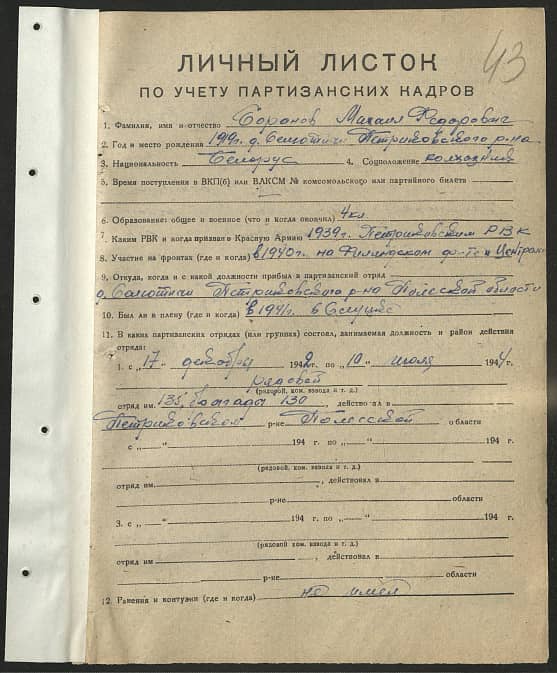 43
ЛИЧНЫЙ ЛИСТОК
ПО УЧЕТУ ПАРТИЗАНСКИХ КАДРОВ
1. Фамилия, имя и отчество Михаил Федорович
2. Год и место рождения 1919 г. д. Снютичи Петриковского р-на
3. Национальность Белорус 4. Соцположение колхозник
5. Время поступления в ВКП(б) или ВЛКСМ № комсомольского или партийного билета
6. Образование: общее и военное (что и когда окончил) 4 кл
7. Каким РВК и когда призван в Красную Армию 1939 г. Петриковским РВК
8. Участие на фронтах (где и когда) в 1940 г. на Финляндском фр-те и Централ
9. Откуда, когда и с какой должности прибыл в партизанский отряд
д. Снютичи Петриковского р-на Полесской области
10. Был ли в плену (где и когда) в 1941 г. в
11. В каких партизанских отрядах (или группах) состоял, занимаемая должность и район действия
отряда:
1. с „17" декабря 1942 г. по „10" июля 1944 г.
рядовой
(рядовой, ком. взвода и т. д.)
отряд им. 135 бригады 130, действовал в
Петриковском р-не Полесской области
с „ " 194 г. по „ " 194 г.
(рядовой, ком. взвода и т. д.)
отряд им. , действовал в
р-не области
3. с „ " 194 г. по „ " 194 г.
(рядовой, ком. взвода и т. д.)
отряд им , действовал в
р-не области
12. Ранения и контузии (где и когда) не имел